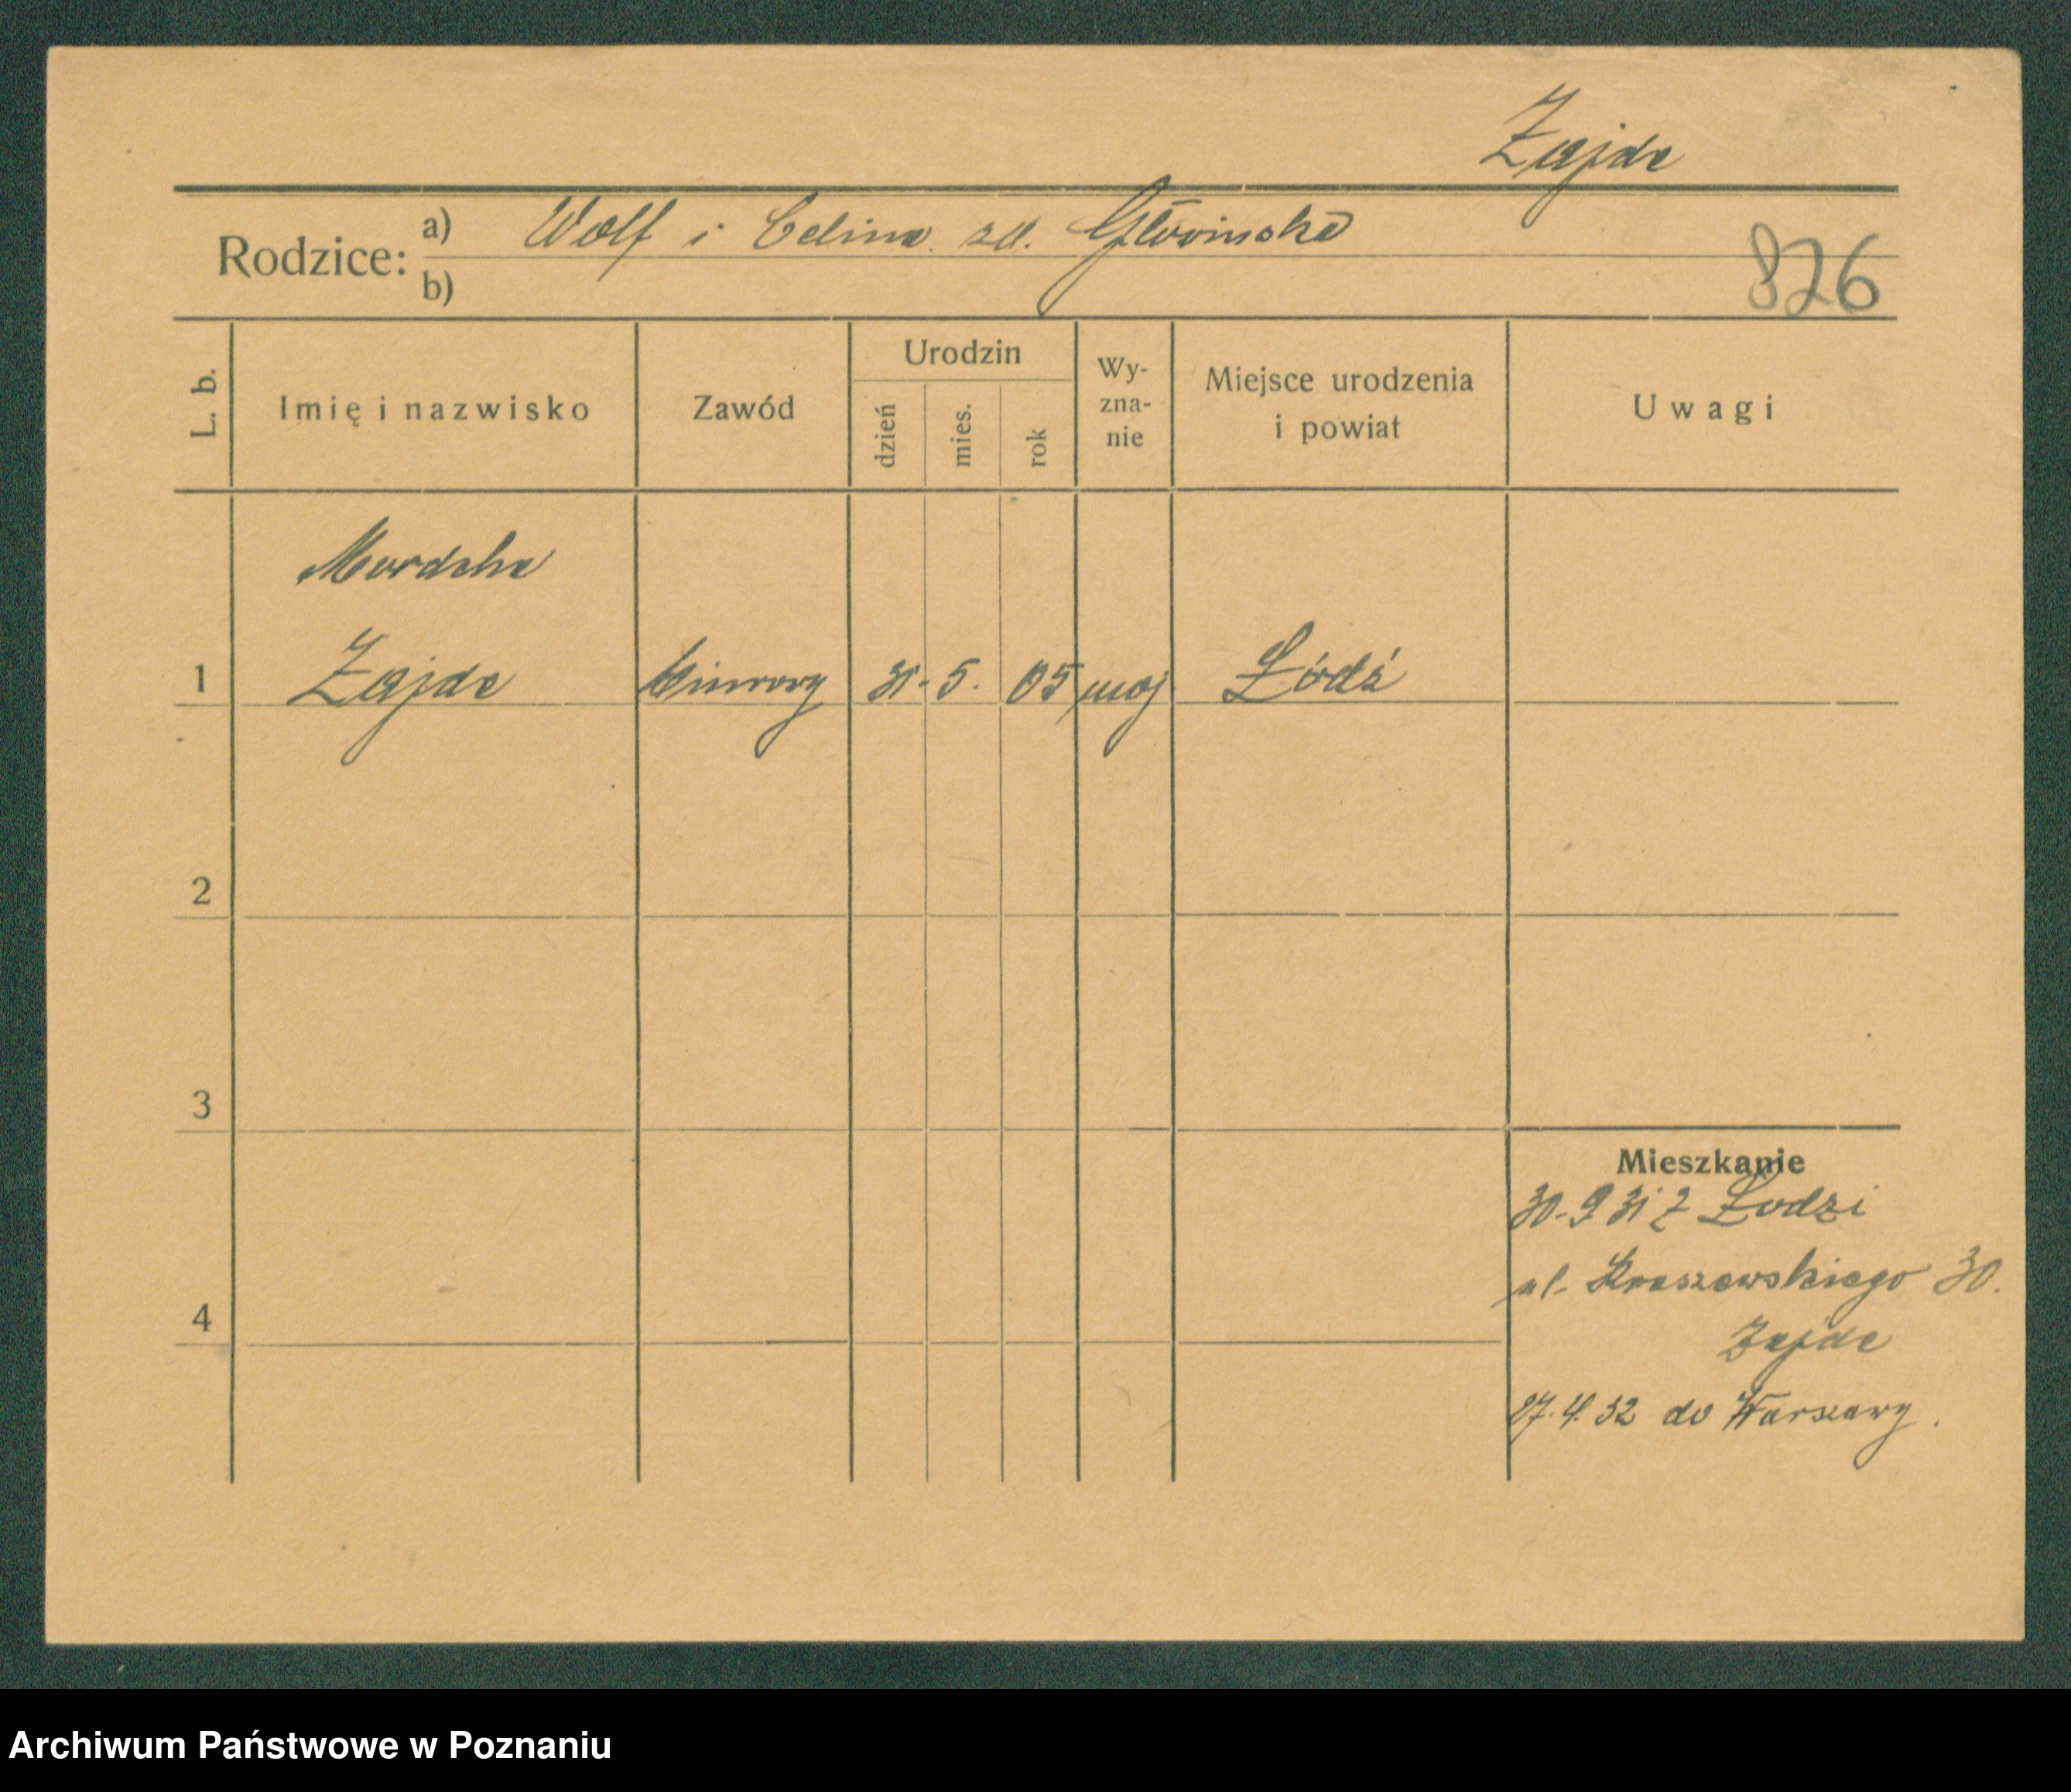 Zajde
Rodzice: a) Wolf i Celina zd. Głowinska
b)
826
L. b. Imię i nazwisko Zawód Urodzin dzień mies. rok Wy-zna-nie Miejsce urodzenia i powiat Uwagi
Mordcha
1 Zajde 31. 5. 05 moj Łódź
2
3
4
Mieszkanie
30-9 31 z Łodzi
ul. Kraszewskiego 30.
Zajde
27.4.32 do Warszawy.
Archiwum Państwowe w Poznaniu